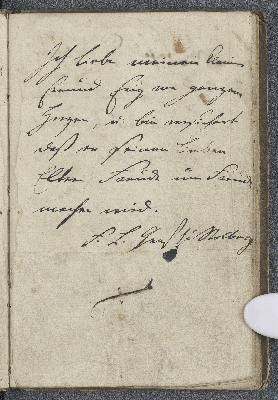 Ich liebe meinen kleinen
Freund Fritz von ganzem
Herzen, u: bin versichert
daß er seinen lieben
Eltern Freude und
machen wird.
F. L. Graf zu Stolberg